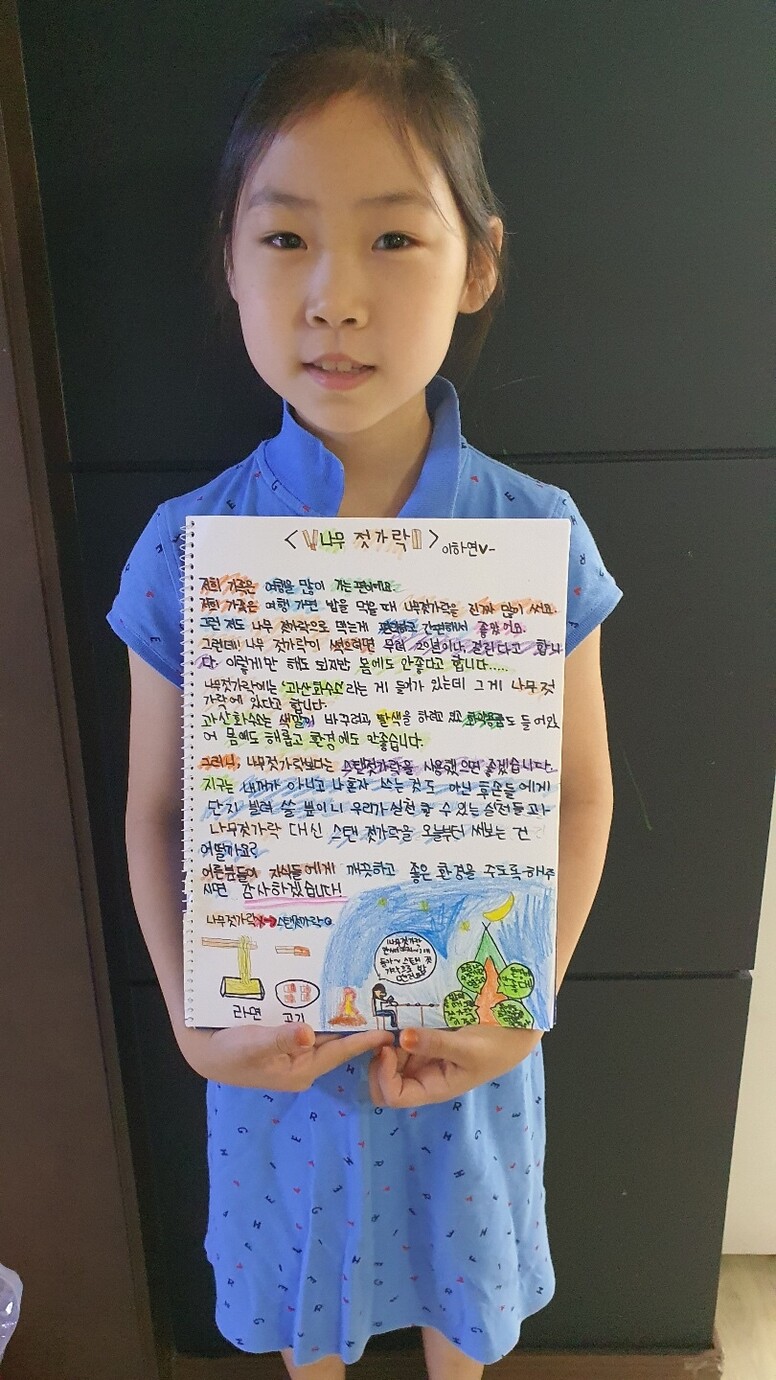 <나무 젓가락> 이하연v-
저희 가족은 여행을 많이 가는 편이에요.
저희 가족은 여행 가면 밥을 먹을 때 나무젓가락을 진짜 많이 써요.
그런 저도 나무 젓가락으로 먹는게 편하고 간편해서 좋았어요.
그런데! 나무 젓가락이 썩으려면 무려 20년이나 걸린다고 합니
다. 이렇게만 해도 되지만 몸에도 안좋다고 합니다.....
나무젓가락에는 '과산화수소'라는 게 들어가 있는데 그게 나무젓
가락에 있다고 합니다.
과산화수소는 색깔이 바꾸려고, 탈색을 하려고 쓰고 화약용품도 들어있
어 몸에도 해롭고 환경에도 안좋습니다.
그러니, 나무젓가락보다는 스텐젓가락을 사용했으면 좋겠습니다.
지구는 내꺼가 아니고 나혼자 쓰는 것도 아닌 후손들에게
단지 빌려 쓸 뿐이니 우리가 실천 할 수 있는 실천들과
나무젓가락 대신 스텐 젓가락을 오늘부터 써보는 건
어떨까요?
어른분들이 자식들에게 깨끗하고 좋은 환경을 주도록 해주
시면 감사하겠습니다!
나무젓가락X→스텐젓가락O
라면 고기